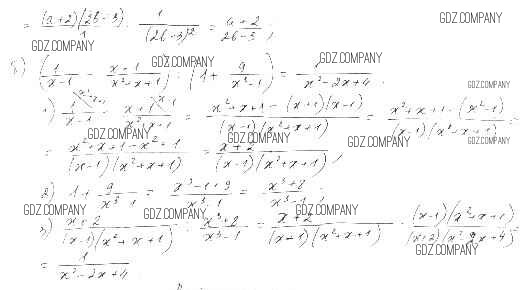 = (a+2)(2b-3)/1 · 1/(2b-3)² = a+2/2b-3 ;
GDZ.COMPANY
GDZ.COMPANY
GDZ.COMPANY GDZ.COMPANY
(1/x-1 - x+1/x²+x+1) : (1+ 9/x³-1) = 1/x²-2x+4 .
GDZ.COMPANY
1) 1/x-1 - x+1/x²+x+1 = x²+x+1-(x+1)(x-1)/(x-1)(x²+x+1) = x²+x+1-(x²-1)/(x-1)(x²+x+1) =
GDZ.COMPANY GDZ.COMPANY GDZ.COMPANY GDZ.COMPANY
= x²+x+1-x²+1/(x-1)(x²+x+1) = x+2/(x-1)(x²+x+1) ;
2) 1+ 9/x³-1 = x³-1+9/x³-1 = x³+8/x³-1 ;
GDZ.COMPANY GDZ.COMPANY GDZ.COMPANY GDZ.COMPANY
3) x+2/(x-1)(x²+x+1) : x³+8/x³-1 = x+2/(x-1)(x²+x+1) · (x-1)(x²+x+1)/(x+2)(x²-2x+4) =
GDZ.COMPANY
= 1/x²-2x+4 .